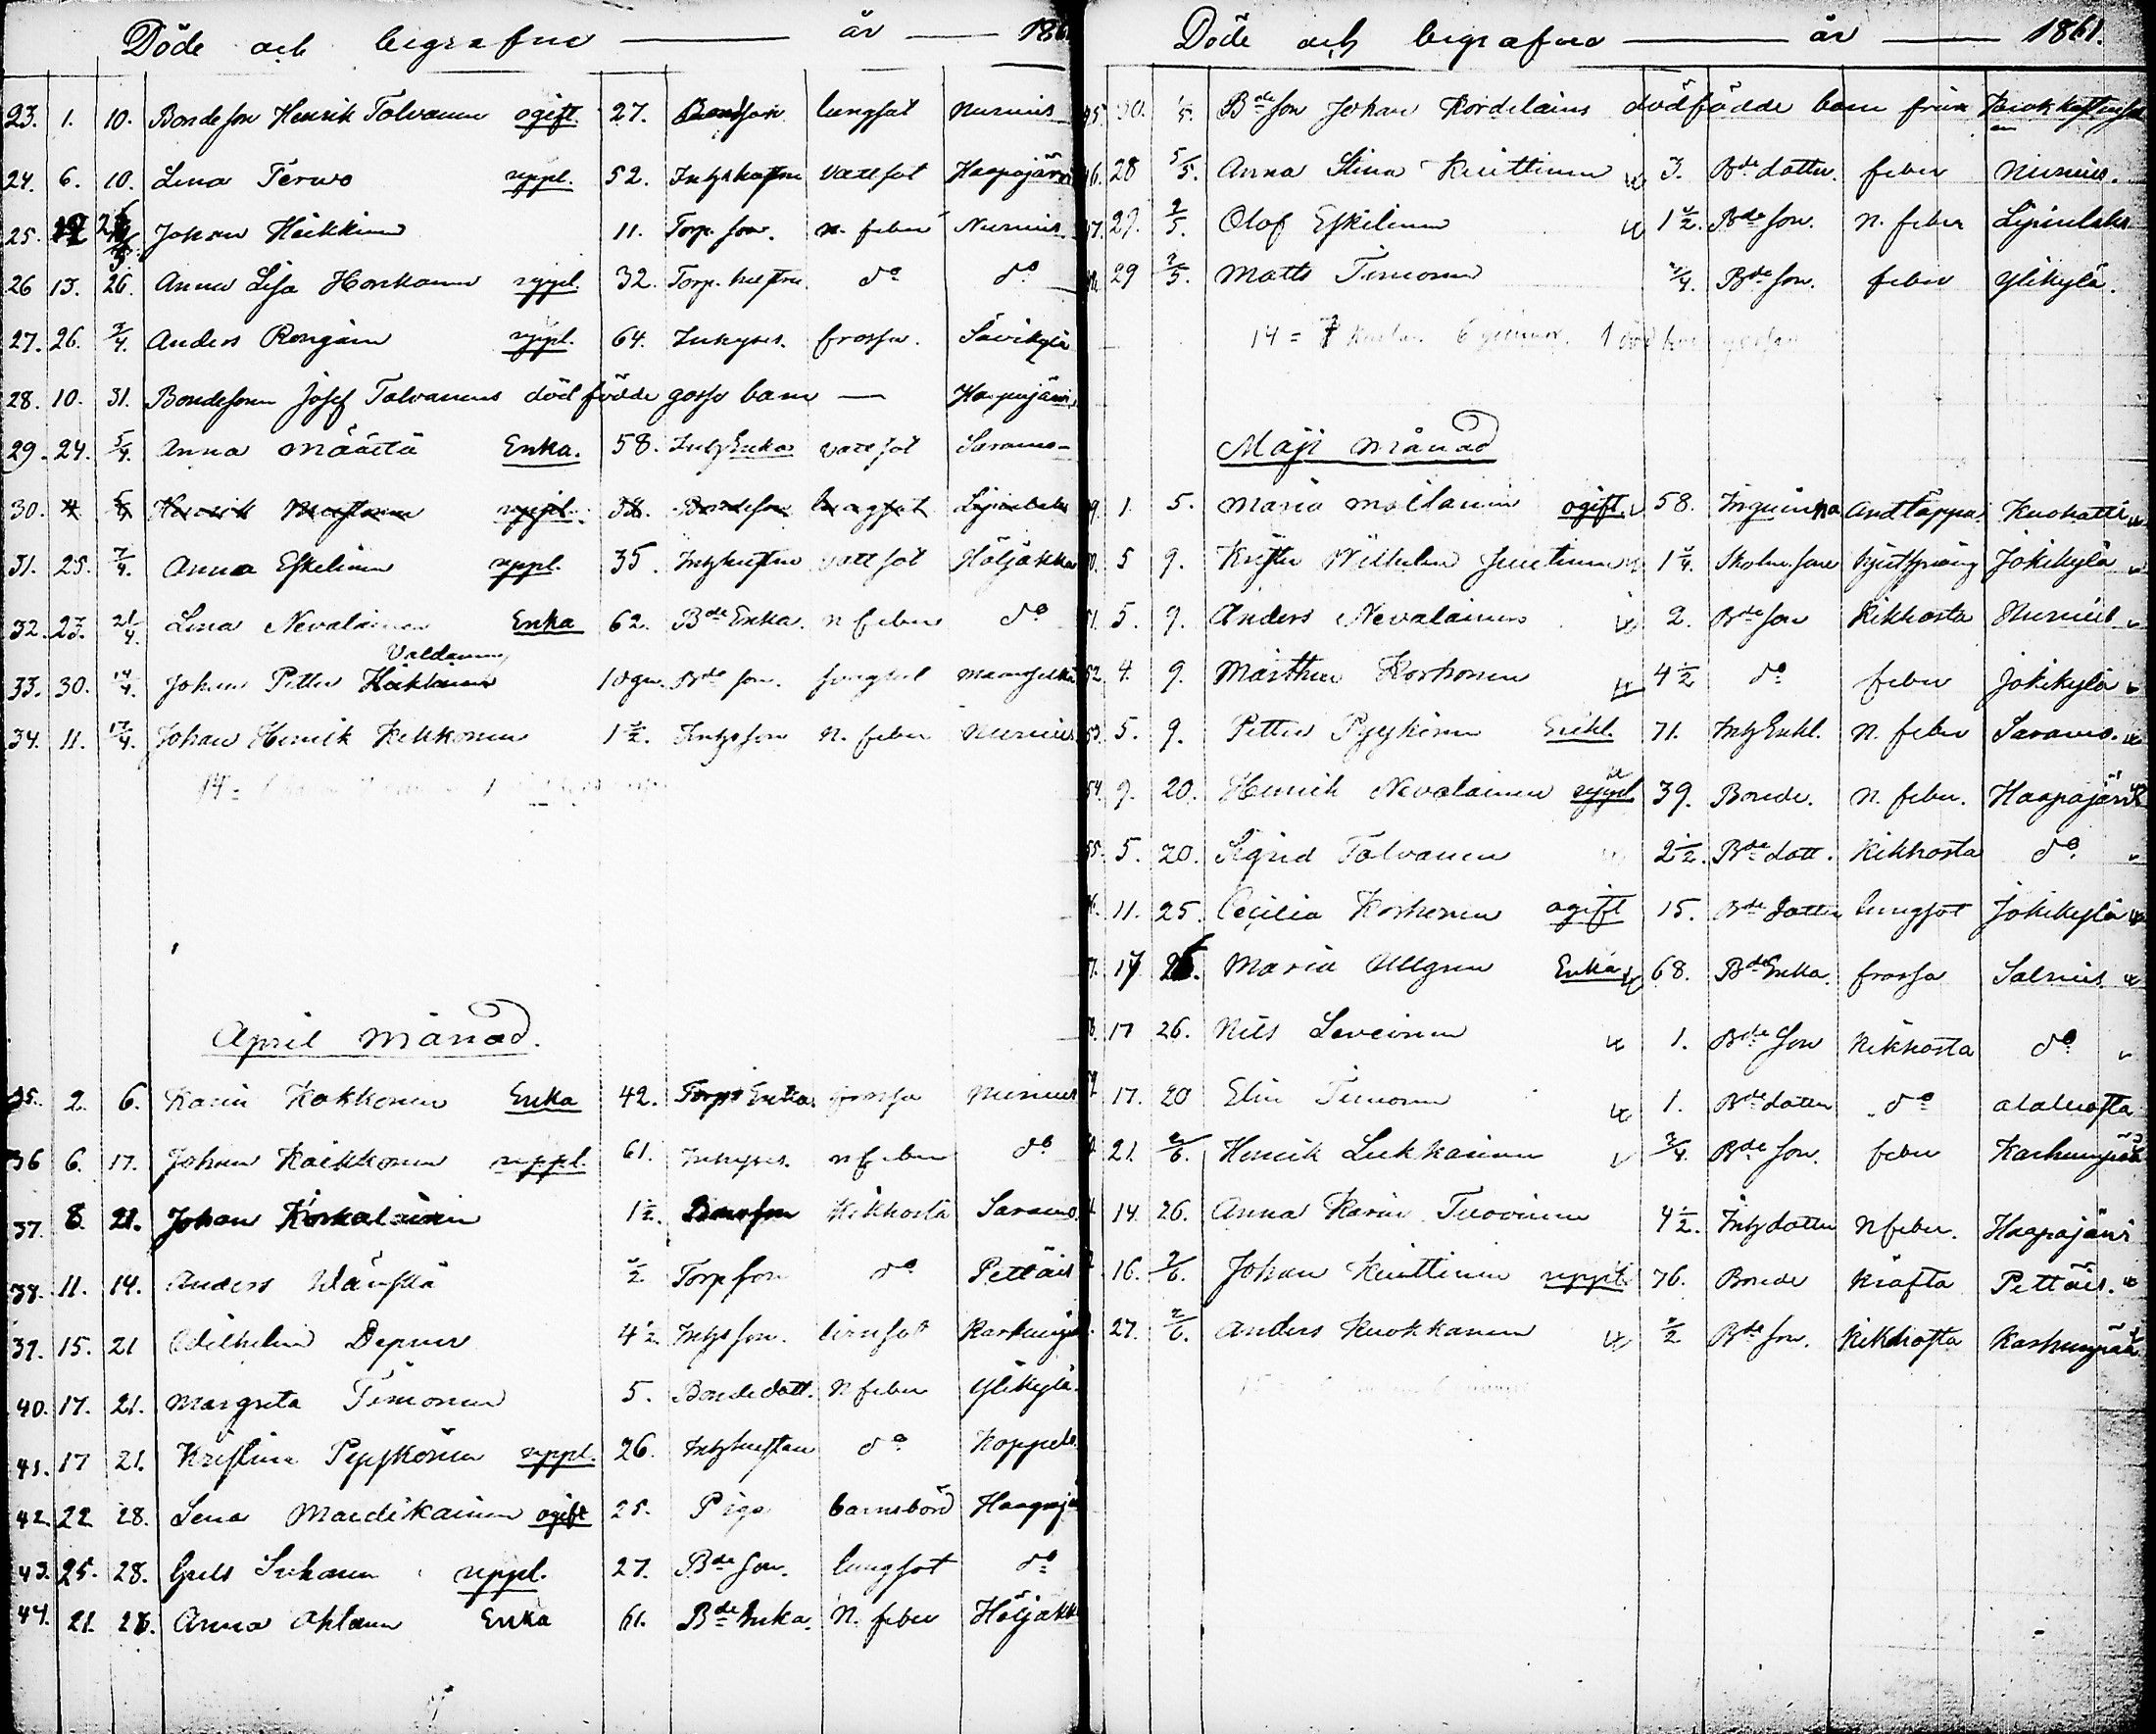 Döde och begrafne år 186
23. 1. 10. Bondeson Henrik Tolvanen ogift 27. Bondson lungsot Nurmis
24. 6. 10. Lena Terwo uppl. 52. Inhs hustru vattsot Haapajärvi
25. Johan Heikkinen 11. Torp. son. n. feber Nurmis
26 13. 26. Anna Lisa Honkanen uppl. 32. Torp. hustru do do
27. 26. 2/4. Anders Rongain uppl. 64. Inhyses. frossa. Savikylä
28. 10. 31. Bondesonen Josef Tolvanens död födde gosse barn — Haapajärvi
29. 24. 5/4. Anna Määttä Enka. 58. Inhs Enka vattsot Saramo
30. 5/4 Henrik uppl. 38. Bondeson lungsot Lipinlaks
31. 25. 7/4. Anna Eskelinen uppl. 35. Inhs hustru vattsot Höljäkkä
32. 23. 21/4. Lena Nevalainen Enka 62. Bde Enka. n feber do
Valdemar
33. 30. 14/4. Johan Petter 10 Bde son.
34. 11. 17/4. Johan Henrik Kekkonen 1 1/2. Inhs son n. feber Nurmis
14 =
April månad.
35. 2. 6. Karin Kokkonen Enka 42. Torps Enka. frossa Nurmis
36 6. 17. Johan Kaikkonen uppl. 61. Inhyses. n feber do
37. 8. 21. Johan Korkalainen 1 1/2. Kikhosta Saramo
38. 11. 14. Anders Wänskä 1/2 Torp son do Pettäis
39. 15. 21 Wilhelm Depner 4 1/2 Inhs son.
40. 17. 21. Margreta Timonen 5. Bondedott. N feber Ylikylä
41. 17 21. Kristina Pyykönen uppl. 26. Inhs hustru do Koppelo
42. 22 28. Lena Mandikainen ogift 25. Piga barnsbörd Haapajä
43. 25. 28. Gels Suhonen uppl. 27. Bde son. lungsot do
44. 21. 28. Anna Ahlanen Enka 61. Bde Enka. N. feber Höljäkk
Döde och begrafna år 1861.
45. 30. 1/5. Bde son Johan Kordelains dödfödde barn från
46. 28 5/5. Anna Stina Kuittinen 3. Bde dotter. feber Nurmis.
47. 27. 2/5. Olof Eskelinen 1 1/2. Bde son. N. feber Lipinlaks
29 2/5. Matts Timonen 3/4. Bde son. feber Ylikylä.
14 = 7 6 qvinnor. 1
Maji månad
49. 1. 5. Maria Moilanen ogift 58. andtäppa. Kuohatti
50. 5 9. Krister Wilhelm Juntunen 1 1/4. Jokikylä
51. 5. 9. Anders Nevalainen 2. Bde son Kikhosta Nurmis
52 4. 9. Märtha Korhonen 4 1/2 do feber Jokikylä
53. 5. 9. Petter Pyykönen Enkl. 71. Inhs Enkl. N. feber Saramo.
54. 9. 20. Henrik Nevalainen uppl 39. Bonde. N. feber. Haapajärvi
55. 5. 20. Sigrid Tolvanen 2 1/2. Bde dott. Kikhosta do
11. 25. Cecilia Korhonen ogift 15. Bde dotter lungsot Jokikylä
17 26. Maria Ullgren Enka 68. Bde Enka. frossa Salmis
17 26. Nils Leveinen 1. Bde Son Kikhosta do
17. 20 Elin Timonen 1. Bde dotter do
21. 2/6. Henrik Lukkarinen 3/4. Bde son. feber Karhunpää
14. 26. Anna Karin Tuovinen 4 1/2. Inhs dotter N feber. Haapajärvi
16. 2/6. Johan Kuittinen uppl 76. Bonde kräfta Pettäis.
27. 2/6. Anders Kuokkanen 1/2 Bde son. Kikhosta Karhunpää